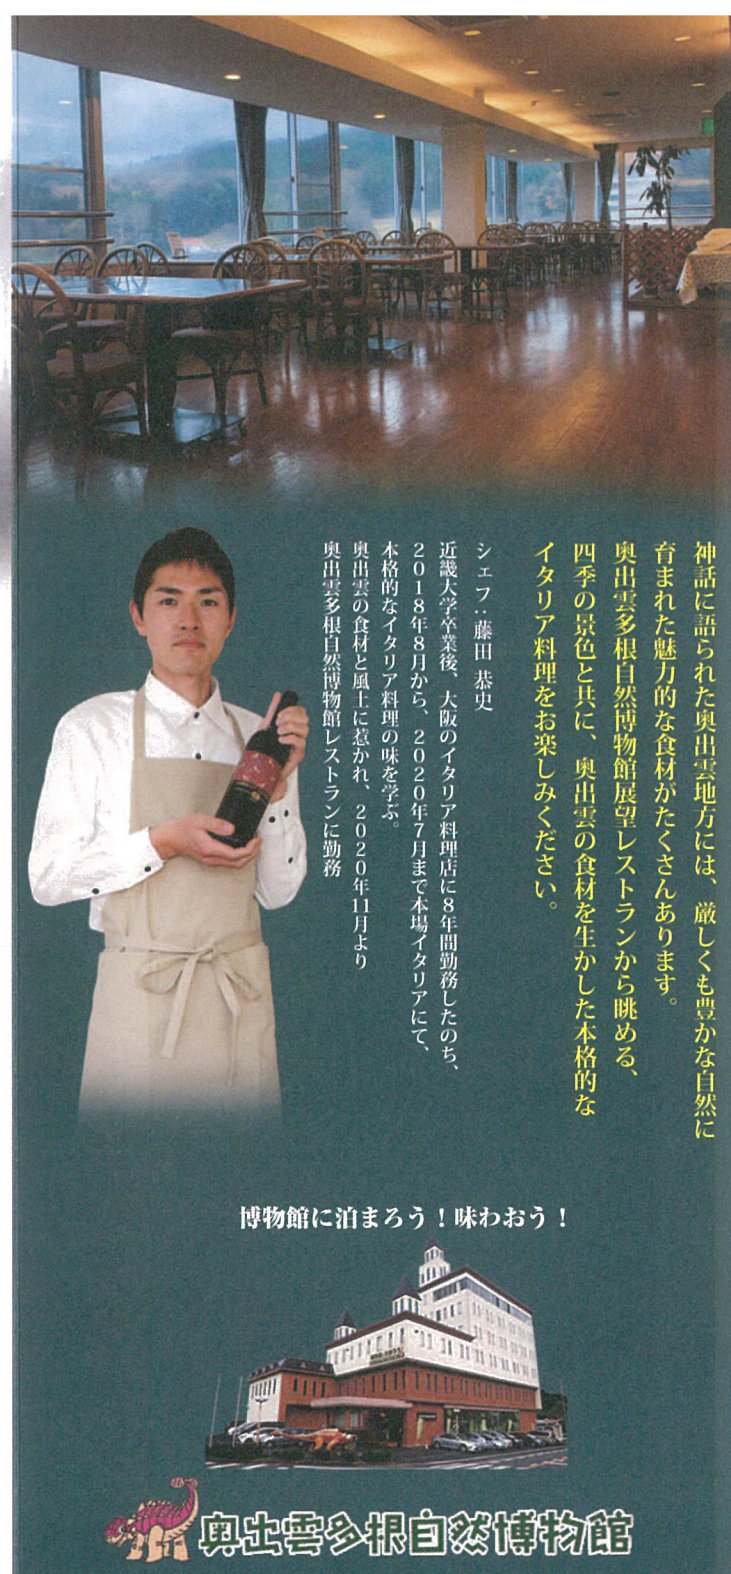 神話に語られた奥出雲地方には、厳しくも豊かな自然に
育まれた魅力的な食材がたくさんあります。
奥出雲多根自然博物館展望レストランから眺める、
四季の景色と共に、奥出雲の食材を生かした本格的な
イタリア料理をお楽しみください。
シェフ：藤田 恭史
近畿大学卒業後、大阪のイタリア料理店に8年間勤務したのち、
2018年8月から、2020年7月まで本場イタリアにて、
本格的なイタリア料理の味を学ぶ。
奥出雲の食材と風土に惹かれ、2020年11月より
奥出雲多根自然博物館レストランに勤務
博物館に泊まろう！味わおう！
奥出雲多根自然博物館